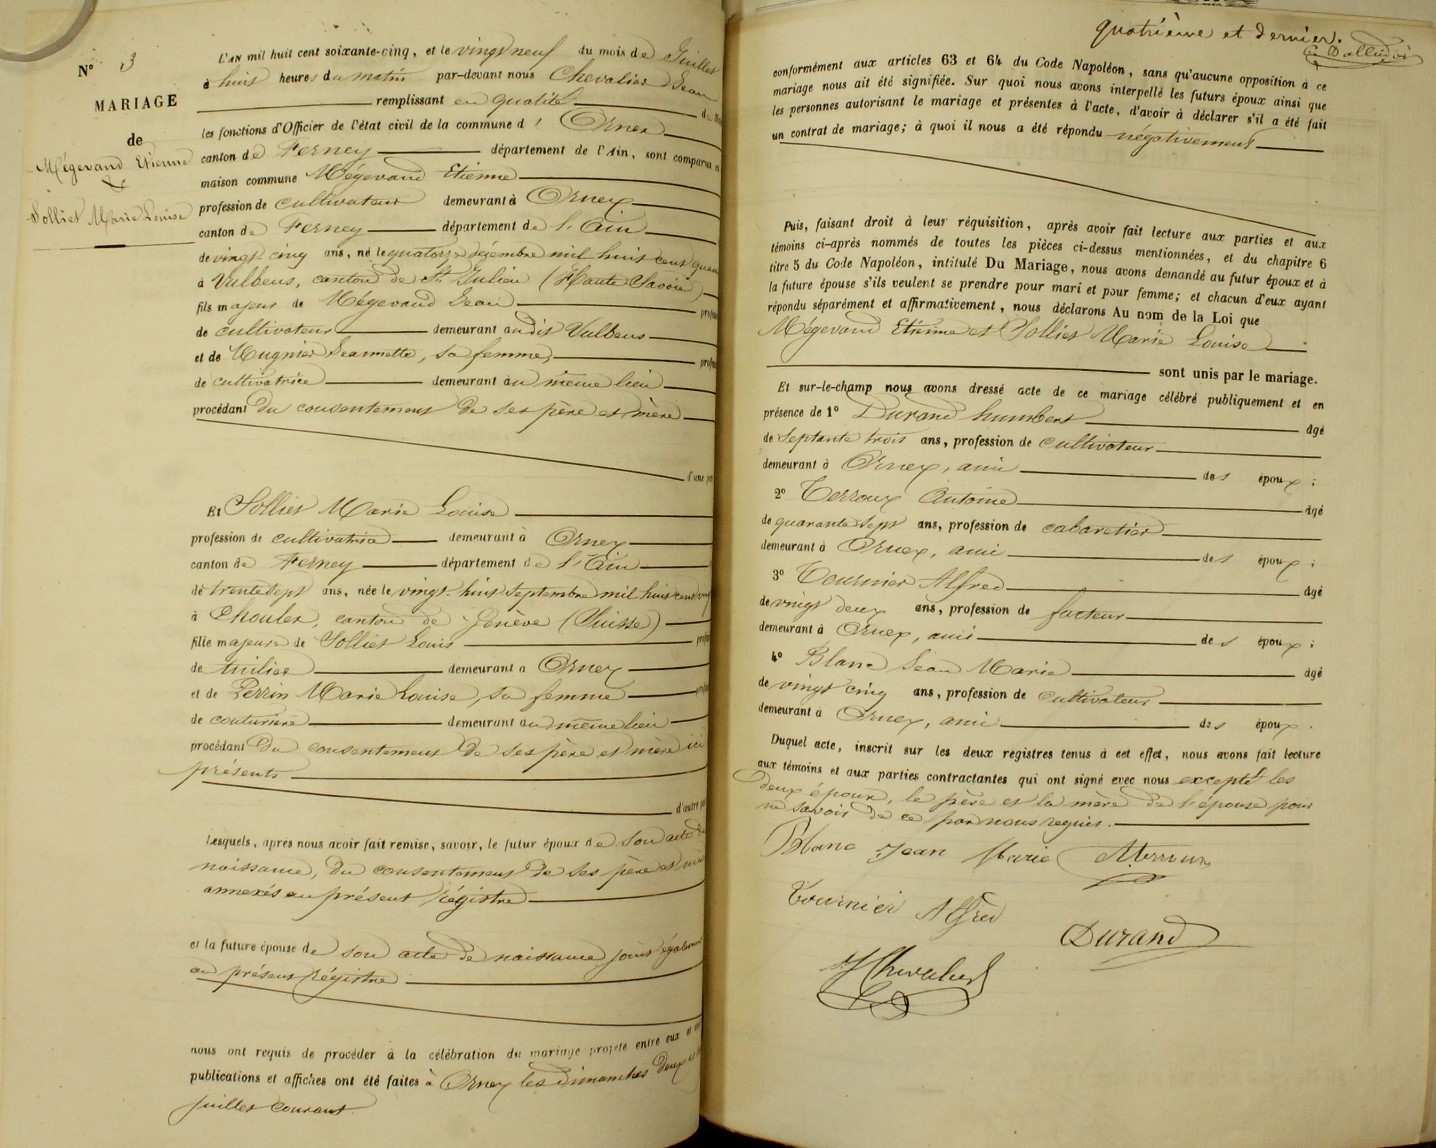 N° 3
MARIAGE
de
Mégevand Etienne
&
Sollier Marie Louise
L'AN mil huit cent soixante-cinq, et le vingt neuf du mois de Juillet
à huit heures du matin par-devant nous Chevalier Jean
remplissant en qualité
les fonctions d'Officier de l'état civil de la commune d' Ornex
canton de Ferney département de l'Ain, sont comparus en
maison commune Mégevand Etienne
profession de cultivateur demeurant à Ornex
canton de Ferney département de l'Ain
de vingt cinq ans, né le quatorze décembre mil huit cent
à Vulbens, canton de St Julien (Haute Savoie)
fils majeur de Mégevand Jean
de cultivateur demeurant au dit Vulbens
et de Mugnier Jeannette, sa femme
de cultivatrice demeurant au même lieu
procédant du consentement de ses père et mère
d'une
Et Sollier Marie Louise
profession de cultivatrice demeurant à Ornex
canton de Ferney département de l'Ain
de trente sept ans, née le vingt-huit septembre mil huit cent
à Choulex, canton de Genève (Suisse)
fille majeure de Sollier Louis
de demeurant à Ornex
et de Perrin Marie Louise, sa femme
de couturière demeurant au même lieu
procédant du consentement de ses père et mère ici
présents
d'autre
Lesquels, après nous avoir fait remise, savoir, le futur époux de son acte de
naissance, du consentement de ses père et
annexés au présent Régistre
et la future épouse de son acte de naissance joint également
au présent Régistre
nous ont requis de procéder à la célébration du mariage projeté entre eux
publications et affiches ont été faites à Ornex les dimanches deux
juillet courant
quatrième et dernier.
conformément aux articles 63 et 64 du Code Napoléon, sans qu'aucune opposition à ce
mariage nous ait été signifiée. Sur quoi nous avons interpellé les futurs époux ainsi que
les personnes autorisant le mariage et présentes à l'acte, d'avoir à déclarer s'il a été fait
un contrat de mariage; à quoi il nous a été répondu négativement
Puis, faisant droit à leur réquisition, après avoir fait lecture aux parties et aux
témoins ci-après nommés de toutes les pièces ci-dessus mentionnées, et du chapitre 6
titre 5 du Code Napoléon, intitulé Du Mariage, nous avons demandé au futur époux et à
la future épouse s'ils veulent se prendre pour mari et pour femme; et chacun d'eux ayant
répondu séparément et affirmativement, nous déclarons Au nom de la Loi que
Mégevand Etienne et Sollier Marie Louise
sont unis par le mariage.
Et sur-le-champ nous avons dressé acte de ce mariage célébré publiquement et en
présence de 1° Durand humbert âgé
de septante trois ans, profession de cultivateur
demeurant à Ornex, ami des époux;
2° Terroux Antoine âgé
de quarante sept ans, profession de cabaretier
demeurant à Ornex, ami des époux;
3° Tournier Alfred âgé
de vingt deux ans, profession de facteur
demeurant à Ornex, ami des époux;
4° Blanc Jean Marie âgé
de vingt cinq ans, profession de cultivateur
demeurant à Ornex, ami des époux.
Duquel acte, inscrit sur les deux registres tenus à cet effet, nous avons fait lecture
aux témoins et aux parties contractantes qui ont signé avec nous excepté les
deux époux, le père et la mère de l'épouse pour
ne savoir de ce par nous requis.
Blanc Jean Marie ATerroux
Tournier Alfred
Durand
JChevalier